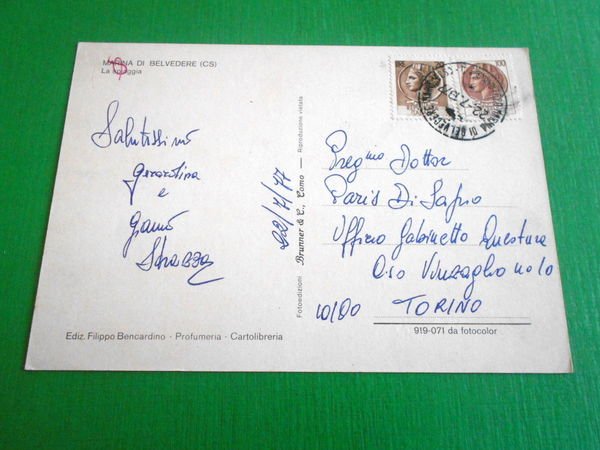 MARINA DI BELVEDERE (CS)
La spiaggia
Salutissimi
Gerardina
e
Gianni
22/7/77
Fotoedizioni Brunner & C., Como — Riproduzione vietata
100
Preg.mo Dottor
Paris Di
Ufficio Gabinetto Questura
C.so Vinzaglio no 10
10100 TORINO
Ediz. Filippo Bencardino - Profumeria - Cartolibreria
919-071 da fotocolor